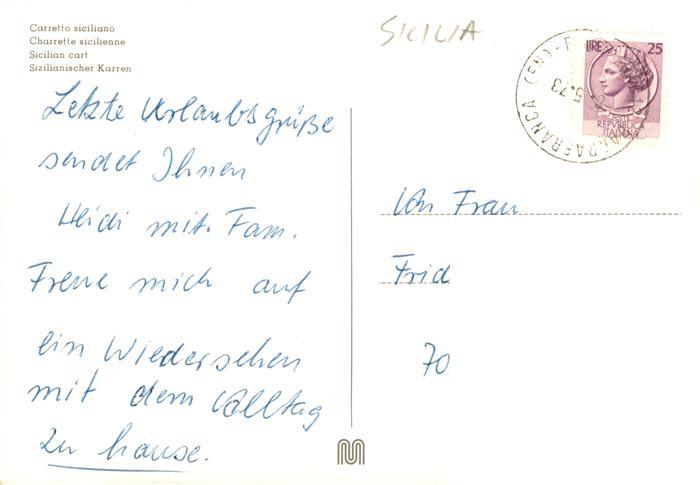 Carretto siciliano
Charrette sicilienne
Sicilian cart
Sizilianischer Karren
SICILIA
LIRE 25
REPUBBLICA
ITALIANA
5.73
BARRAFRANCA (EN)
Letzte Urlaubsgrüße
sendet Ihnen
Heidi mit. Fam.
Freue mich auf
ein Wiedersehen
mit dem Alltag
zu hause.
Frau
Frid
70